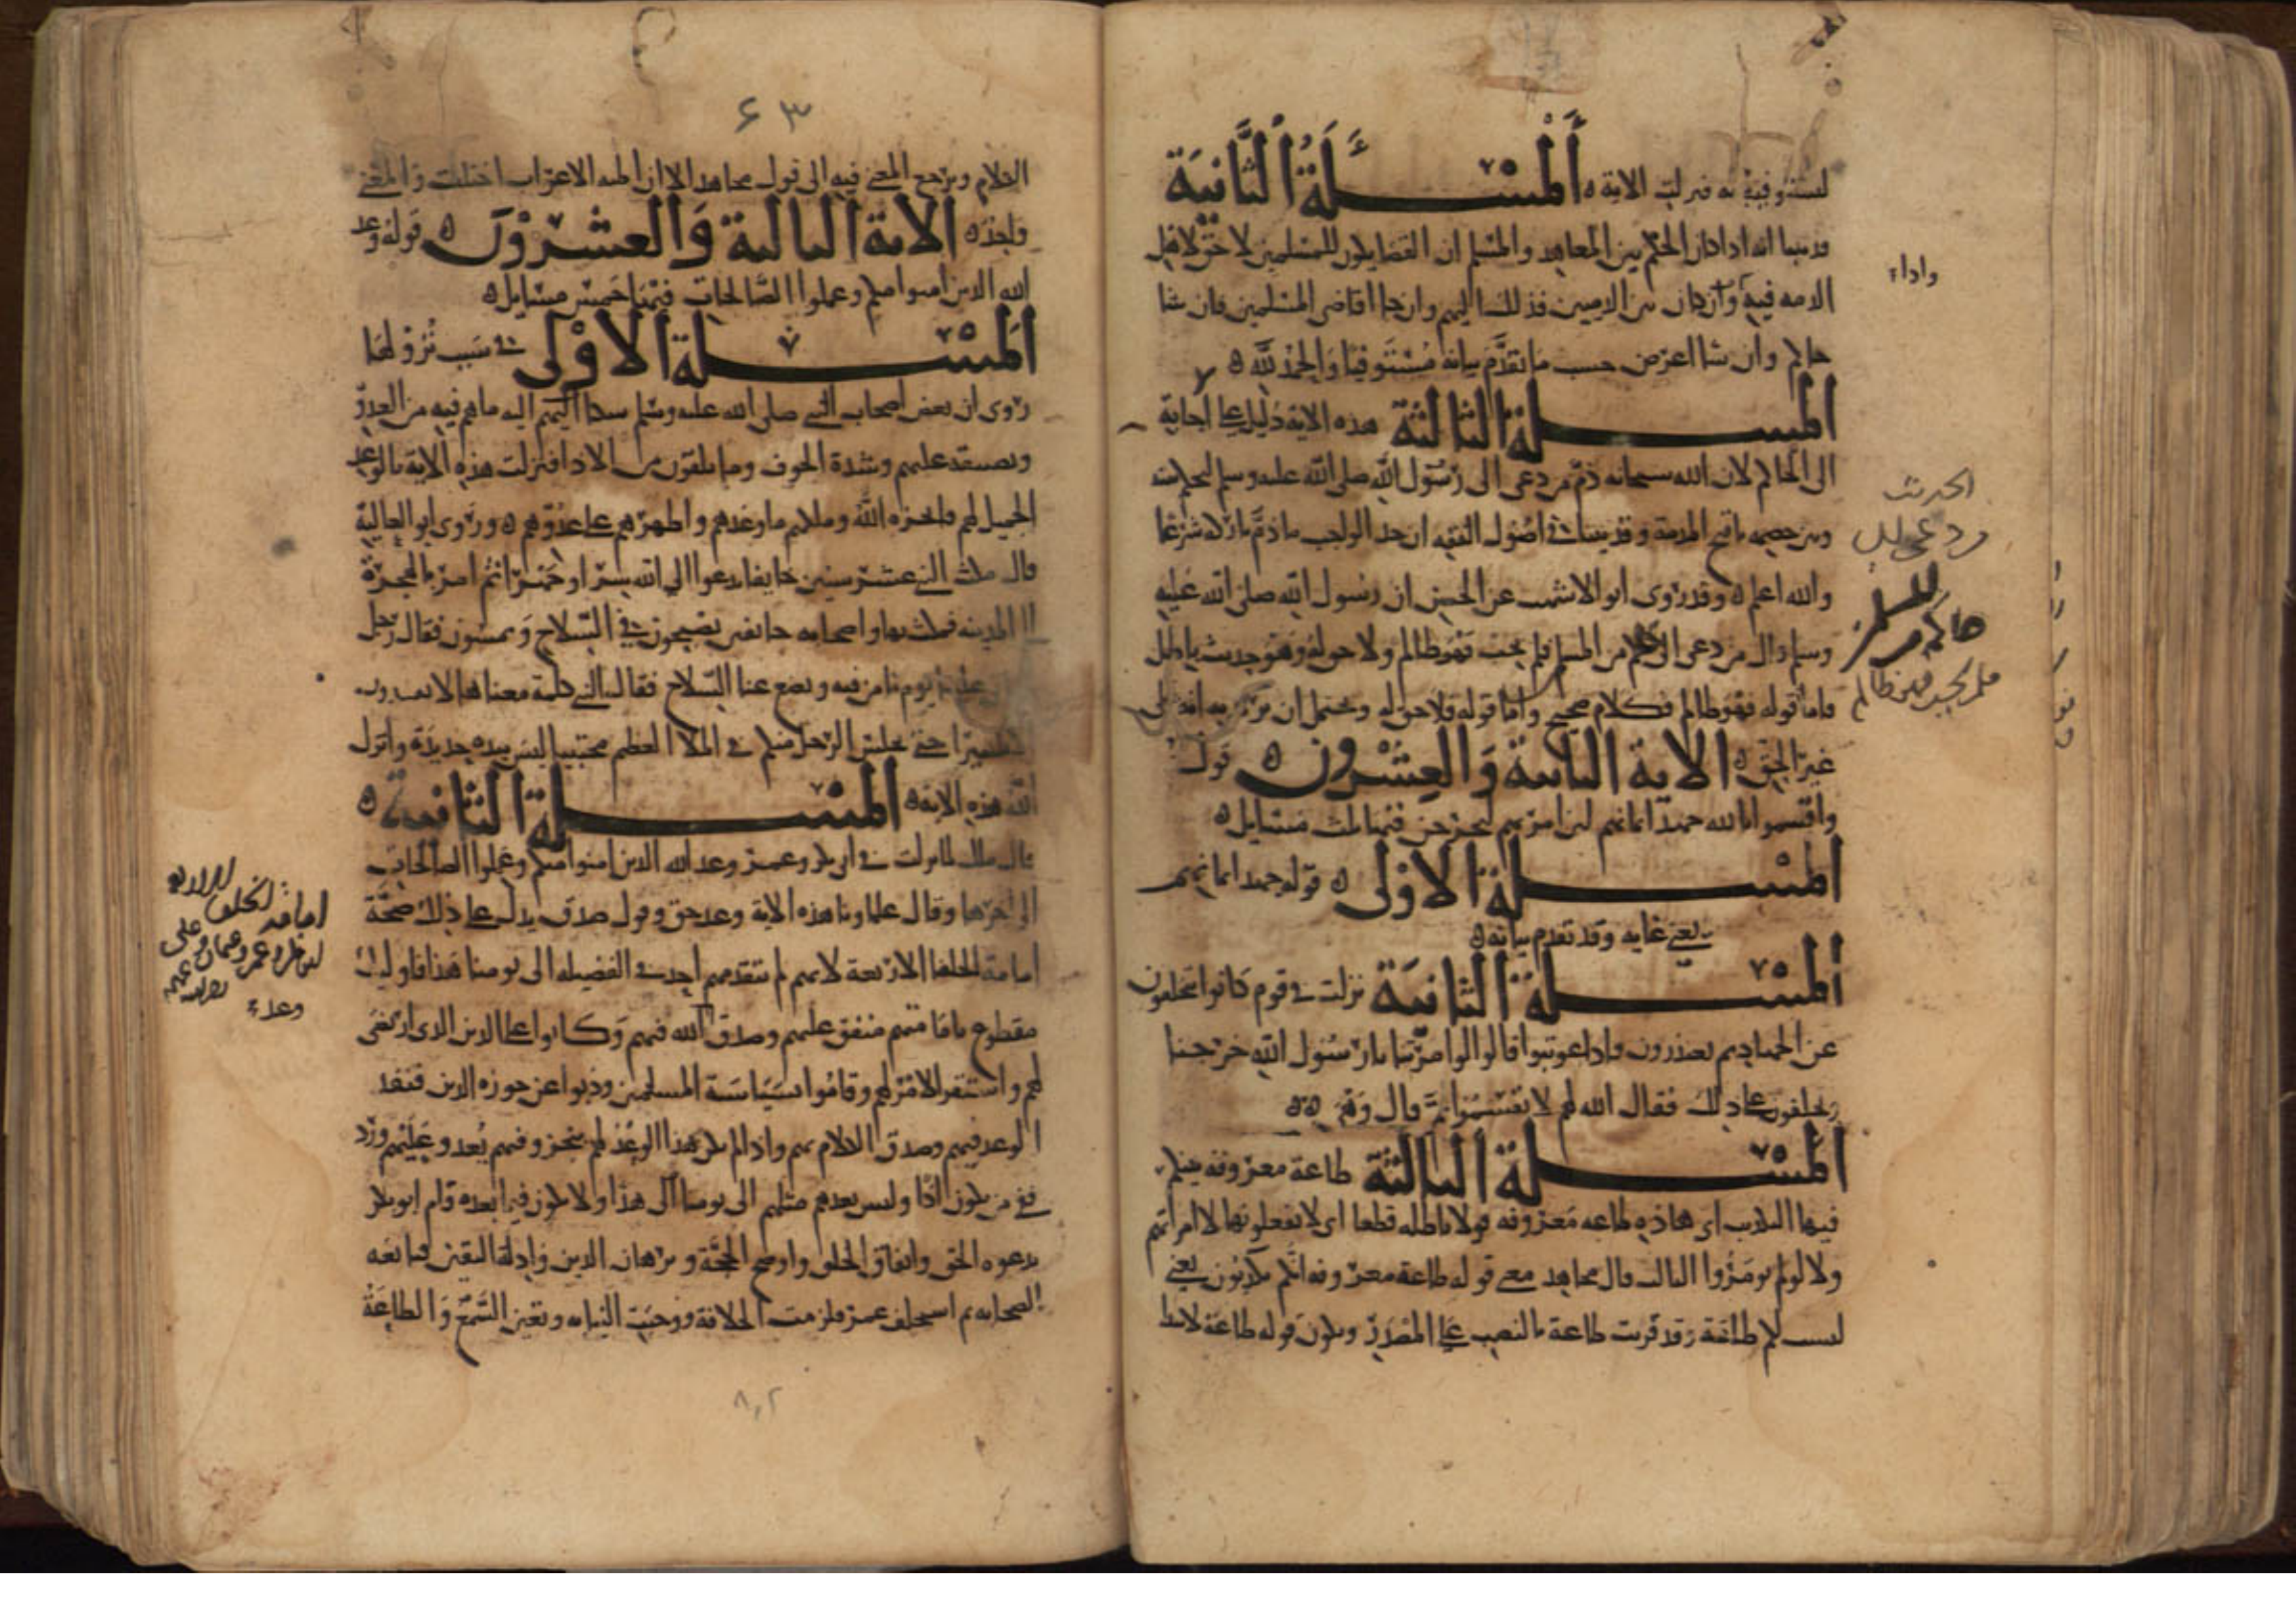 لنستوفيه له فنزلت الاية ه اَلْمَسْئَلَةُ الثَّانِيَة
قد بينا انه اذا كان الحكم بين المعاهد والمسلم ان القضا يكون للمسلمين لا حق لاهل
الذمه فيه وان كان بين الذميين فذلك اليهم وان جاا قاضي المسلمين فان شا
حكم وان شا اعرض حسب ما تقدم بيانه مستوفيا والحمد لله ه
المسلة الثالثة هذه الاية دليل على اجابة
الى الحاكم لان الله سبحانه ذم من دعى الى رسول الله صلى الله عليه وسلم ليحكم بينه
وبين خصمه باقبح المذمة وقد بينا في اصول الفقه ان حد الواجب ما ذم تاركه شرعا
والله اعلم ه وقد روى ابو الاشهب عن الحسن ان رسول الله صلى الله عليه
وسلم قال من دعى الى حاكم من المسلمين فلم يجب فهو ظالم ولا حق له وهو حديث باطل
فاما قوله فهو ظالم فكلام صحيح واما قوله فلا حق له ويحتمل ان يريد به انه على
غير الحق ه الاية الثانية والعشرون ه قوله
واقسموا بالله جهد ايمانهم لئن امرتهم ليخرجن فيها ثلث مسايل ه
المسلة الاولى ه قوله جهد ايمانهم
يعني غايه وقد تقدم بيانه ه
المسلة الثانية نزلت في قوم كانوا يتخلفون
عن الجهاد ثم يعتذرون فاذا عوتبوا قالوا لو امرتنا يا رسول الله خرجنا
ويحلفون على ذلك فقال الله لهم لا تقسموا ثم قال وهي ه ه
المسلة الثالثة طاعة معروفه فيها
فيها الثلاث اي هذه طاعه معروفه قولا باطله قطعا اي لا يفعلونها الا امراتهم
ولا لو لم يومروا الثالث قال مجاهد معنى قوله طاعة معروفه انكم تكذبون يعني
ليست لكم طاعة وقد قريت طاعة بالنصب على المصدر ويكون قوله طاعة لابتدا
واداء
الحديث
من دعى الى
حاكم من المسلمين
فلم يجب فهو ظالم
٦٣
الكلام ويرجع المعنى فيه الى قول مجاهد الا ان اطلبه الاعراب اختلفت والمعنى
واحد ه الاية الثالثة والعشرون ه قوله وعد
الله الذين امنوا منكم وعملوا الصالحات فيها خمس مسايل ه
المسلة الاولى في سبب نزولها
روى ان بعض اصحاب النبي صلى الله عليه وسلم شكا اليهم اليه ما هم فيه من العدو
وتضييقه عليهم وشدة الخوف وما يلقون من الاذا فنزلت هذه الاية بالوعد
الجميل لهم فانجزه الله وملكهم ما وعدهم واظهرهم على عدوهم ه وروى ابو العالية
قال مكث النبي عشر سنين خايفا يدعوا الى الله سرا وجهرا ثم امر بالهجرة
الى المدينه فمكث بها واصحابه خايفين يصبحون في السلاح ويمسون فقال رجل
علينا يوم نامن فيه ونضع عنا السلاح فقال النبي كلمة معناها لا تعبرون
يسيرا حتى يجلس الرجل منكم في الملا العظيم محتبيا ليس بيده حديدة وانزل
الله هذه الاية ه المسلة الثانية ه
قال ملك نزلت في ابي بكر وعمر وعد الله الذين امنوا منكم وعملوا الصالحات
الى اخرها وقال علماونا هذه الاية وعد حق وقول صدق يدل على ذلك صحة
امامة الخلفا الاربعة لانهم لم يتقدمهم احد في الفضيله الى يومنا هذا فاوليك
مقطوع بامامتهم متفق عليهم وصدق الله فيهم وكانوا على الدين الذي ارتضى
لهم واستقر الامر لهم وقاموا بسياسة المسلمين وذبوا عن حوزه الدين فنفذ
الوعد فيهم وصدق الكلام بهم واذا لم يكن هذا الوعد لهم ينجز وفيهم نفذ وعليهم ورد
ففي من يكون اذا وليس بعدهم مثلهم الى يومنا هذا ولا يكون فيما بعده قام ابو بكر
بدعوه الحق واتفاق الخلق واوضح الحجة وبرهان الدين وادلة اليقين فبايعه
الصحابه ثم استخلف عمر فلزمت الخلافة ووجبت النيابه وتعين السمع والطاعة
امامة الخلفا الاربعه
ابو بكر وعمر وعثمان وعلى
وعدء
٨٠٢